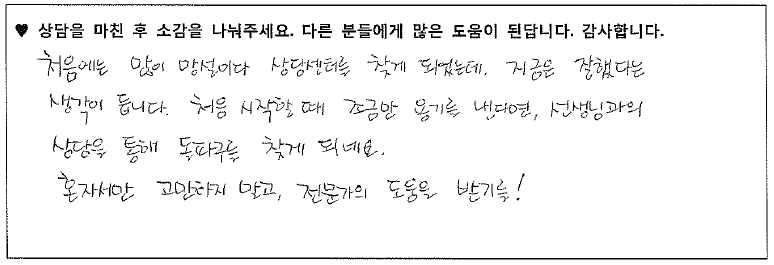 ♥ 상담을 마친 후 소감을 나눠주세요. 다른 분들에게 많은 도움이 된답니다. 감사합니다.
처음에는 많이 망설이다 상담센터를 찾게 되었는데. 지금은 잘했다는
생각이 듭니다. 처음 시작할 때 조금만 용기를 낸다면, 선생님과의
상담을 통해 돌파구를 찾게 되네요.
혼자서만 고민하지 말고, 전문가의 도움을 받기를!